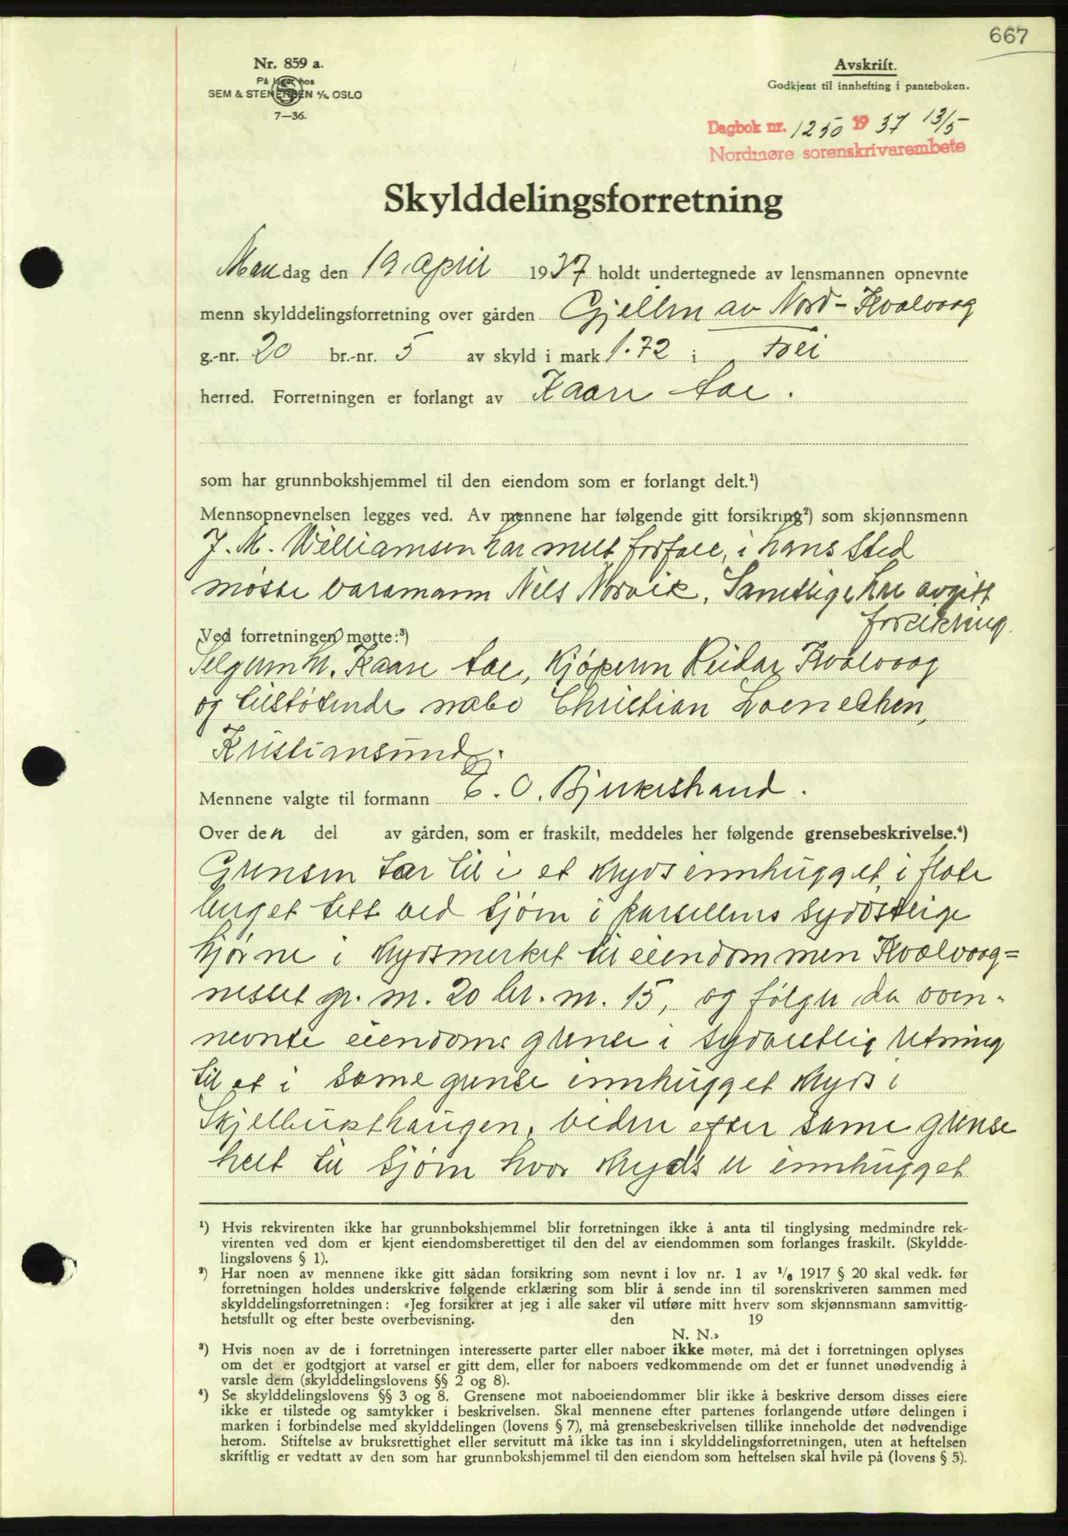 667
Nr. 859 a.
På lager hos
SEM & STENERSEN A/S, OSLO
7—36.
Avskrift.
Godkjent til innhefting i panteboken.
Dagbok nr. 1250 1937 13/5
Nordmøre sorenskrivarembete
Skylddelingsforretning
Mandag den 19 april 1937 holdt undertegnede av lensmannen opnevnte
menn skylddelingsforretning over gården Gjellen av Nord-Kvalvaag
g.-nr. 20 br.-nr. 5 av skyld i mark 1.72 i Frei
herred. Forretningen er forlangt av Kaare Aae.
som har grunnbokshjemmel til den eiendom som er forlangt delt.¹)
Mennsopnevnelsen legges ved. Av mennene har følgende gitt forsikring²) som skjønnsmenn
J. M. Williamsen har meldt forfall, i hans sted
møtte varamann Nils Norvik. Samtlige har avgitt
forsikring.
Ved forretningen møtte:³)
Selgeren hr. Kaare Aae, kjøperen Reidar Kvalvaag
og tilstøtende nabo Christian Loennechen,
Kristiansund.
Mennene valgte til formann E. O. Bjerkestrand.
Over den del av gården, som er fraskilt, meddeles her følgende grensebeskrivelse.⁴)
Grensen tar til i et kryds innhugget i flate
berget tett ved sjøen i parsellens sydøstlige
hjørne i krydsmerket til eiendommen Kvalvaag=
nesset gr. nr. 20 br. nr. 15, og følger da oven-
nevnte eiendoms grense i sydvestlig retning
til et i same grense innhugget kryds i
Skjelbukthaugen, videre efter same grense
helt til sjøen hvor kryds er innhugget
¹) Hvis rekvirenten ikke har grunnbokshjemmel blir forretningen ikke å anta til tinglysing medmindre rek-
virenten ved dom er kjent eiendomsberettiget til den del av eiendommen som forlanges fraskilt. (Skyldde-
lingslovens § 1).
²) Har noen av mennene ikke gitt sådan forsikring som nevnt i lov nr. 1 av 1/6 1917 § 20 skal vedk. før
forretningen holdes underskrive følgende erklæring som blir å sende inn til sorenskriveren sammen med
skylddelingsforretningen: «Jeg forsikrer at jeg i alle saker vil utføre mitt hverv som skjønnsmann samvittig-
hetsfullt og efter beste overbevisning. den 19
N. N.»
³) Hvis noen av de i forretningen interesserte parter eller naboer ikke møter, må det i forretningen oplyses
om det er godtgjort at varsel er gitt dem, eller for naboers vedkommende om det er funnet unødvendig å
varsle dem (skylddelingslovens §§ 2 og 8).
⁴) Se skylddelingslovens §§ 3 og 8. Grensene mot naboeiendommer blir ikke å beskrive dersom disses eiere
ikke er tilstede og samtykker i beskrivelsen. Skal mennene efter partenes forlangende utføre delingen i
marken i forbindelse med skylddelingen (lovens § 7), må grensebeskrivelsen tillike inneholde det nødvendige
herom. Stiftelse av bruksrettighet eller servitutt må ikke tas inn i skylddelingsforretningen, uten at heftelsen
skriftlig er vedtatt av den som har grunnbokshjemmel til den eiendom som heftelsen skal hvile på (lovens § 5).